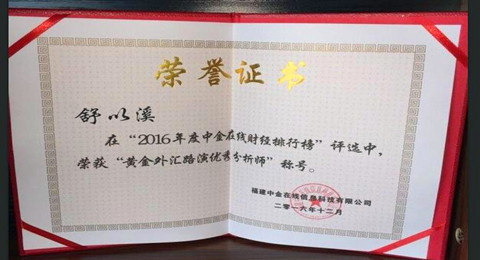 荣誉证书
舒以溪
在“2016年度中金在线财经排行榜”评选中，
荣获“黄金外汇路演优秀分析师”称号。
福建中金在线信息科技有限公司
二零一六年十二月